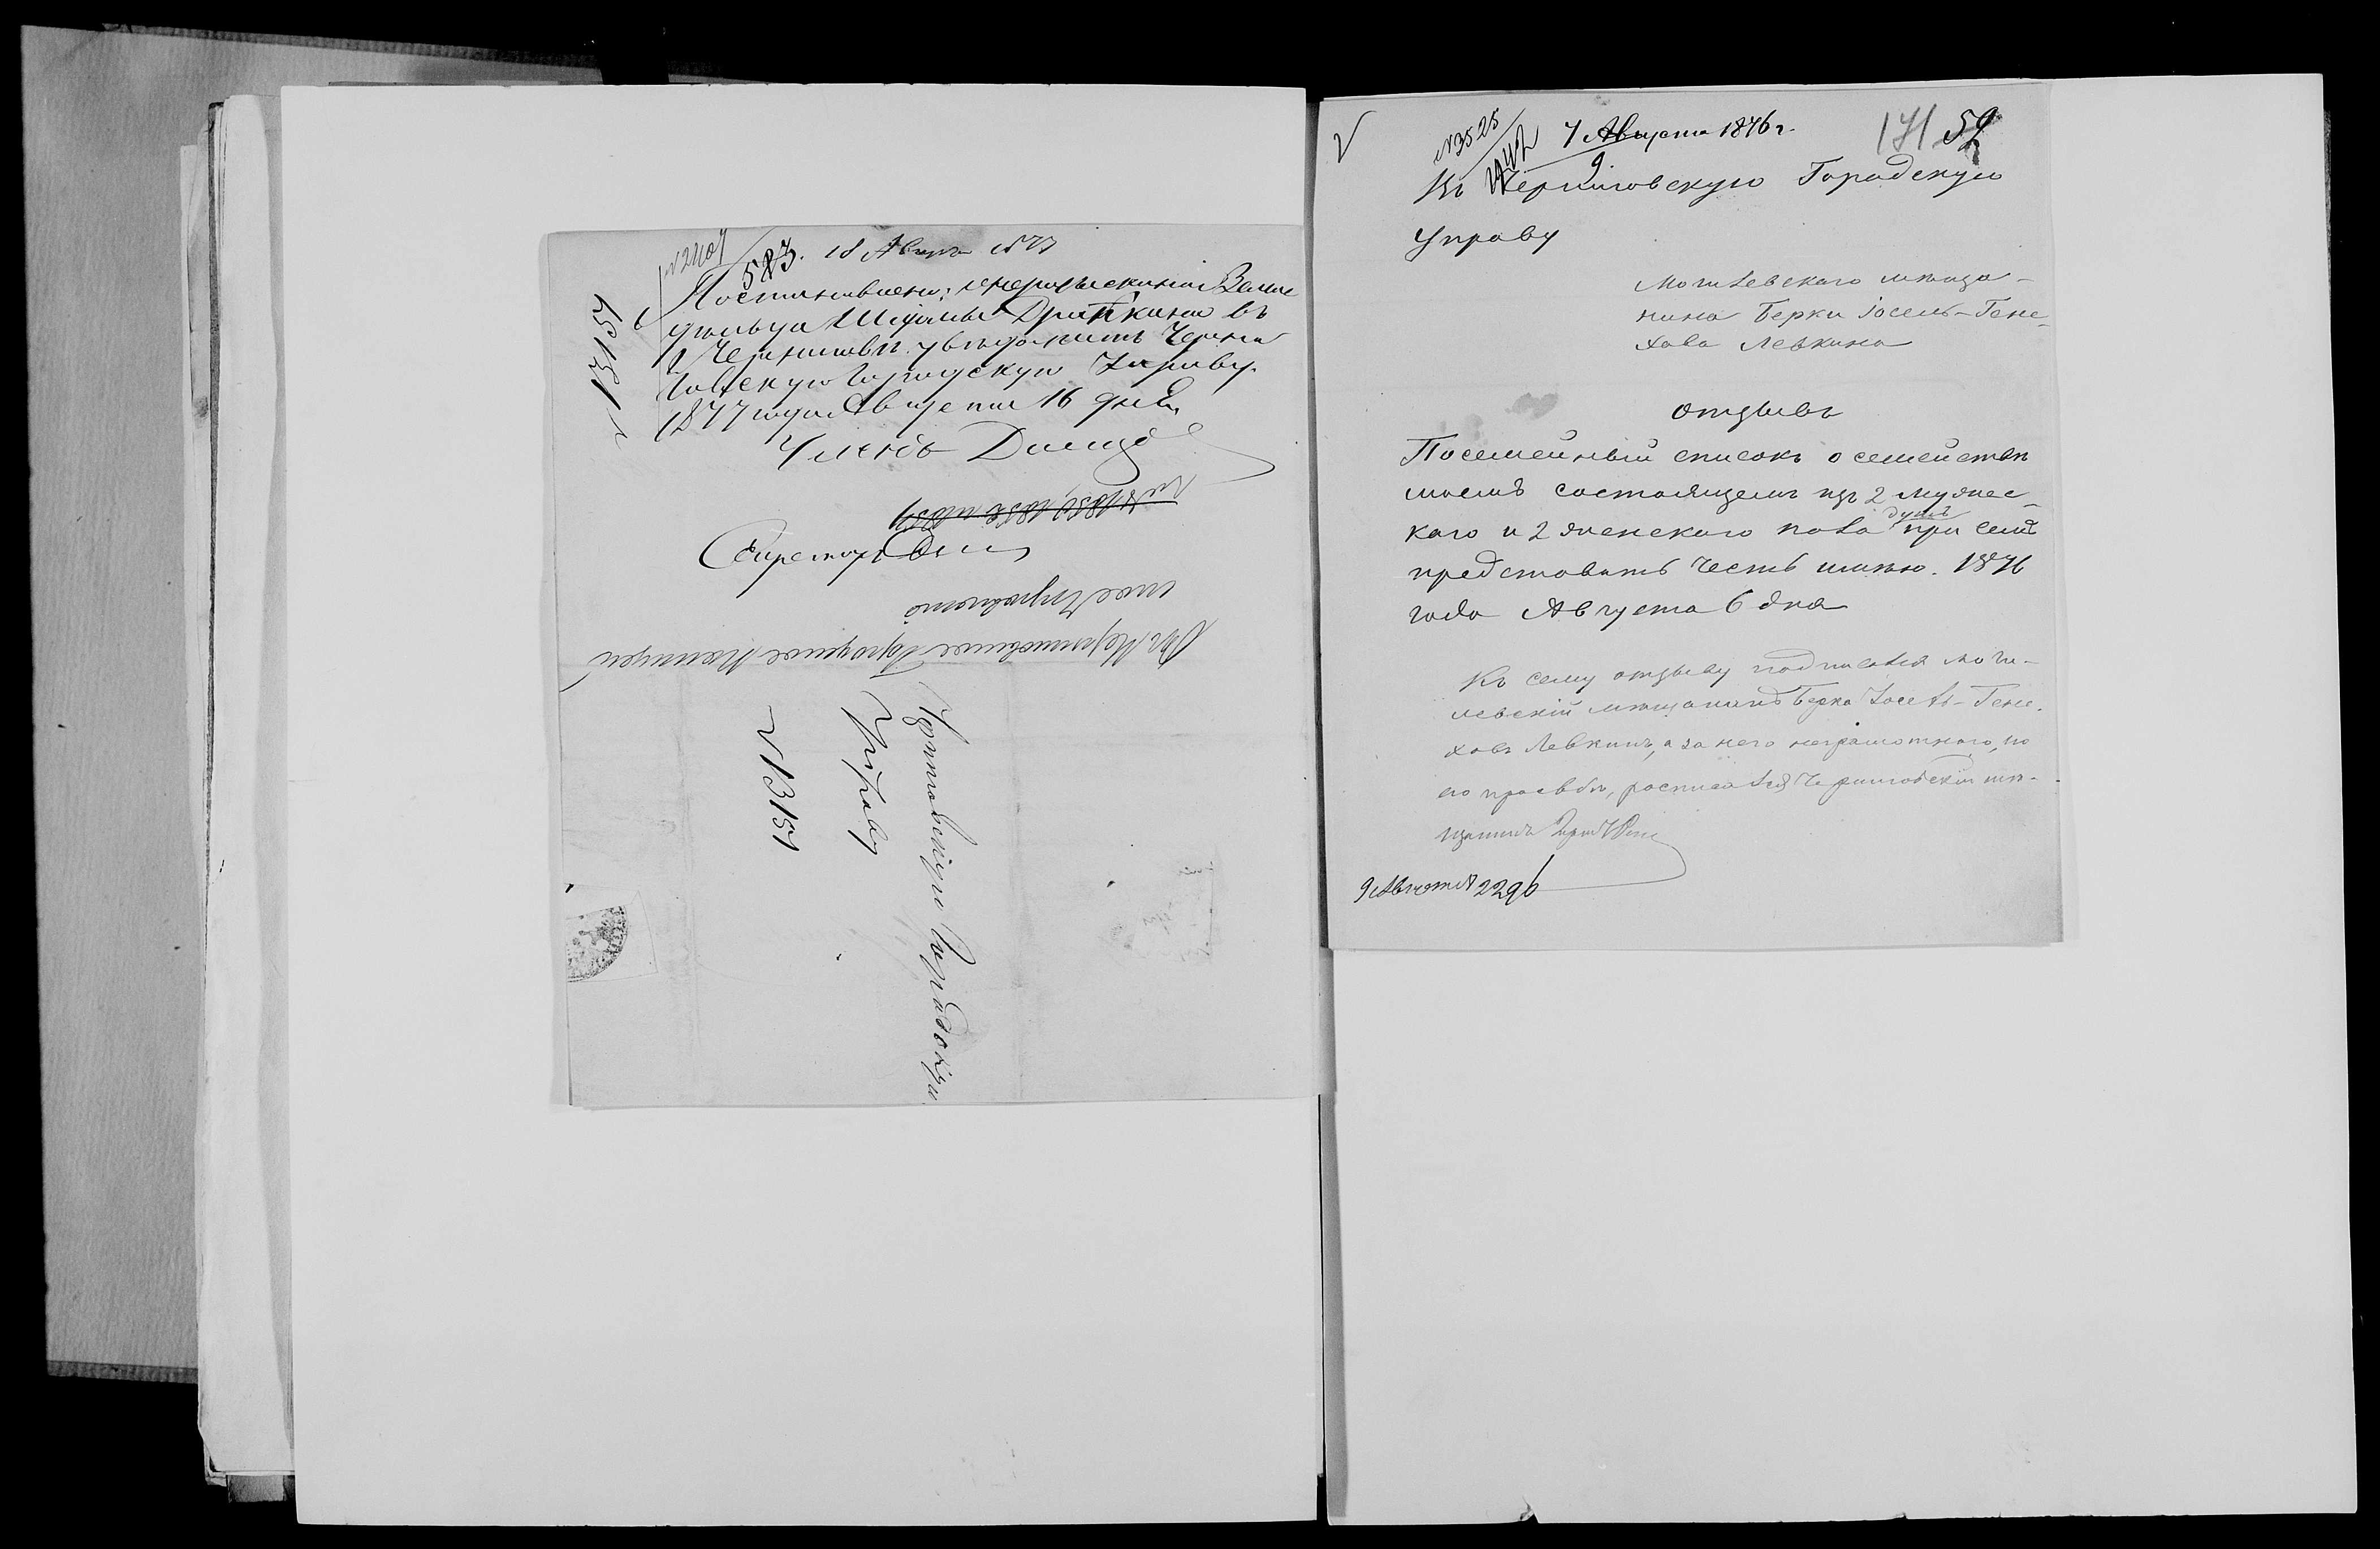 №2407
583. 18 Авгус 1877
Постановлено: о нерозысканіи Земле
дѣльца Шдамы Дрипкина въ
г Черниговѣ увѣдомить Черни
говскую городскую Управу.
1877 года Августа 16 дня
Членъ
Секретарь
От Черниговское Городское Полицей
ское Управленіе
Черниговскую Городскую
Управу
№13151
№13151
№3525
7 Августа 1876 г.
171 59
Въ Черниговскую Городскую
Управу
Могилевскаго мѣща-
нина Берки Іосель-Гене-
хова Левкина
отзывъ
Посемейный списокъ о семействѣ
моемъ состоящемъ изъ 2 мужес-
каго и 2 женскаго пола душъ при семъ
представить честь имѣю. 1876
года Августа 6 дня
Къ сему отзыву подписался моги-
левскій мѣщанинъ Берка Іосель-Гене-
ховъ Левкинъ, а за него неграмотнаго, по
его просьбѣ, росписался Черниговскій мѣ-
щанинъ
9 Августа 2296